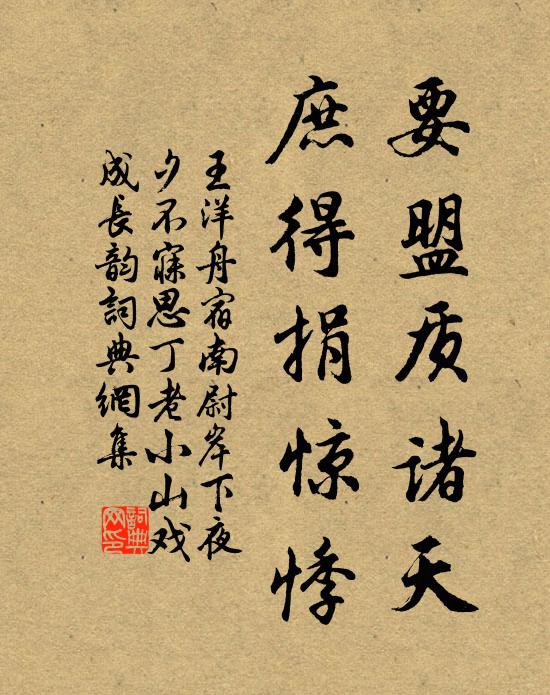 要盟质诸天
庶得捐惊悸
王洋舟宿南尉岸下夜
夕不寐思丁老小山戏
成长韵詞典網集
詞典網印